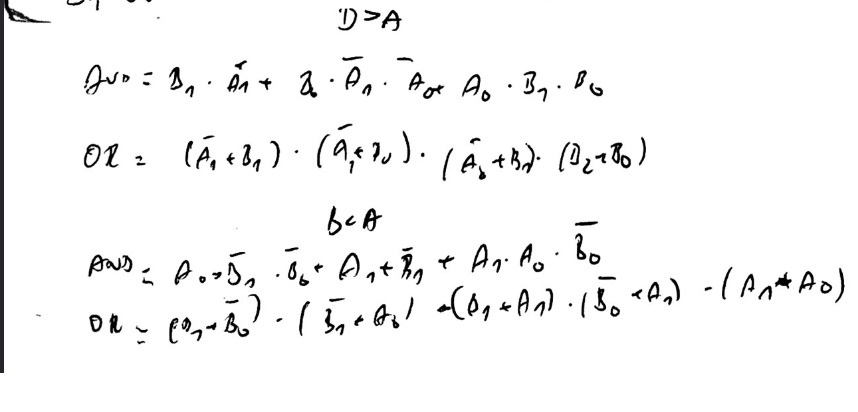 D>A
AND = B₁ · Ā₁ + B₀ · Ā₁ · Ā₀ + A₀ · B₁ · B₀
OR = (Ā₁ + B₁) · (Ā₁ + B₀) · (Ā₀ + B₁) · (B₂ + B₀)
B<A
AND = A₀ · B̄₁ · B̄₀ + A₁ + B̄₁ + A₁ · A₀ · B̄₀
OR = (B₁ + B̄₀) · (B̄₁ + A₀) · (B₁ + A₁) · (B̄₀ + A₁) · (A₁ + A₀)